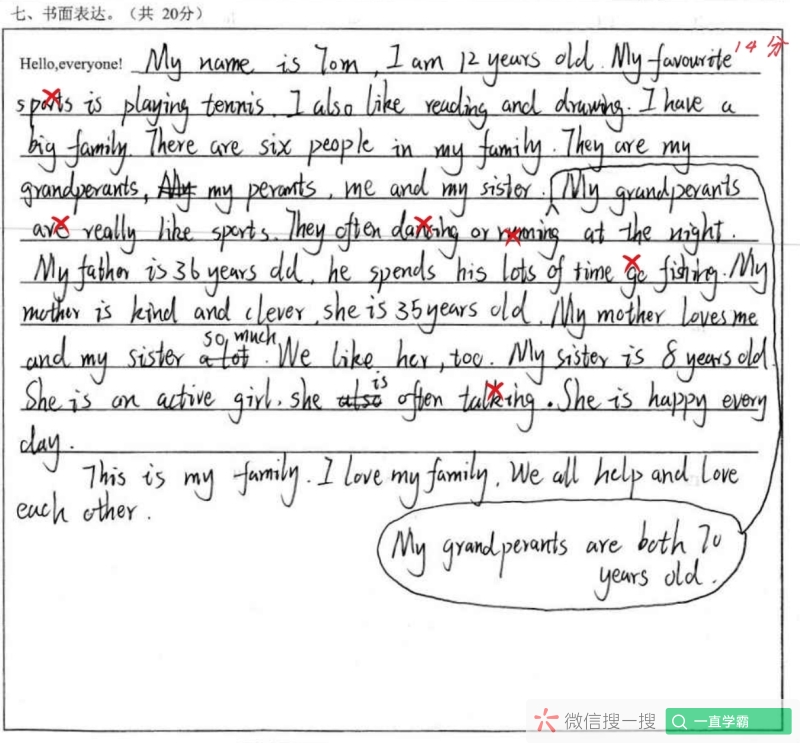 七、书面表达。（共 20分）
14分
Hello,everyone! My name is Tom, I am 12 years old. My favourite
sports is playing tennis. I also like reading and drawing. I have a
big family. There are six people in my family. They are my
grandperants, My my perants, me and my sister. My grandperants
are really like sports. They often dancing or running at the night.
My father is 36 years old, he spends his lots of time go fishing. My
mother is kind and clever, she is 35 years old. My mother loves me
so much
and my sister a lot. We like her, too. My sister is 8 years old.
is
She is an active girl, she also often talking. She is happy every
day.
This is my family. I love my family. We all help and love
each other.
My grandperants are both 70
years old.
微信搜一搜 一直学霸